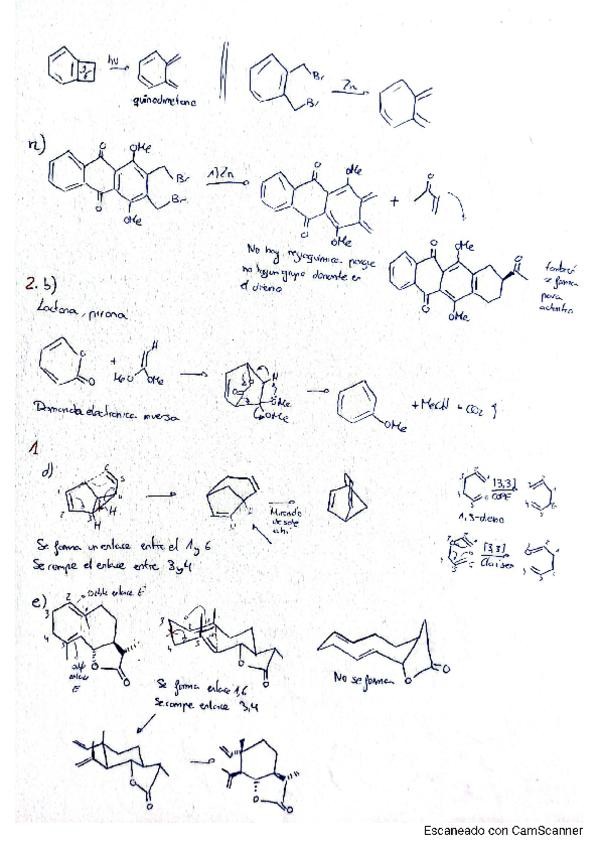 hν
quinodimetano
Br
Br
Zn
n)
O
OMe
Br
Br
O
OMe
1) Zn
O
OMe
O
OMe
+
O
No hay regioquímica porque
no hay un grupo donante en
el dieno
O
OMe
O
OMe
O
también
se forma
para
2. b)
Lactona, pirona
O
O
+
MeO
OMe
H
OMe
OMe
OMe
+ MeOH + CO2 ↑
Demanda electrónica inversa
1
d)
H
H
Mirando
desde
ahí
[3,3]
COPE
1,5-dieno
[3,3]
Claisen
Se forma un enlace entre el 1 y 6
Se rompe el enlace entre 3 y 4
e)
Doble enlace E
2
3
4
enlace
E
O
O
Se forma enlace 1,6
Se rompe enlace 3,4
No se forma
O
O
O
O
O
O
Escaneado con CamScanner